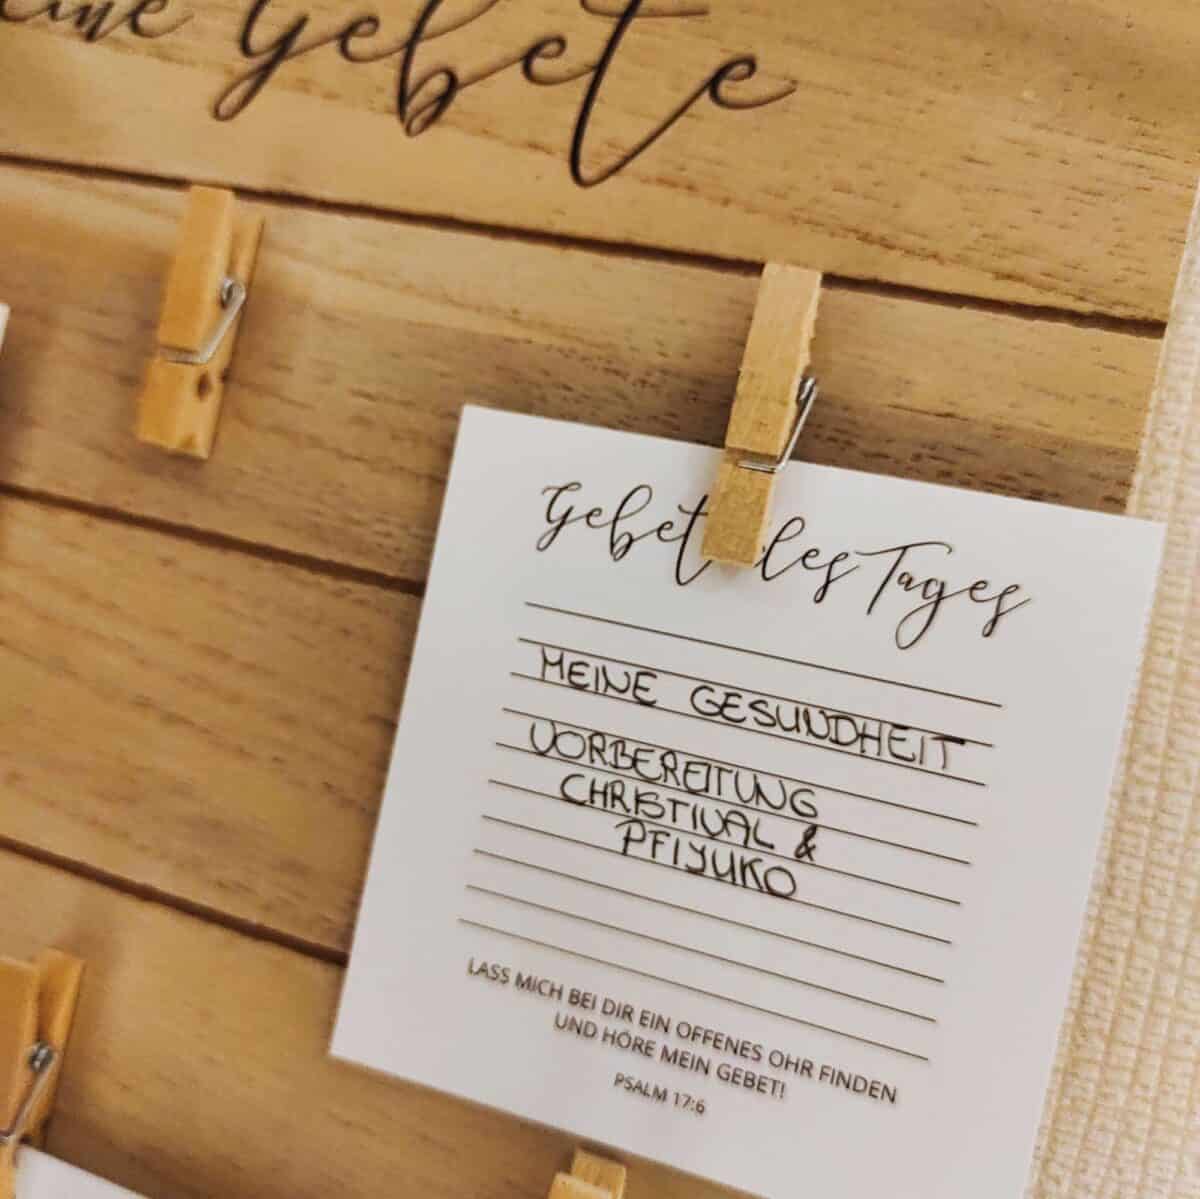 eine Gebete
Gebet des Tages
MEINE GESUNDHEIT
VORBEREITUNG
CHRISTIVAL &
PFIJUKO
LASS MICH BEI DIR EIN OFFENES OHR FINDEN
UND HÖRE MEIN GEBET!
PSALM 17:6